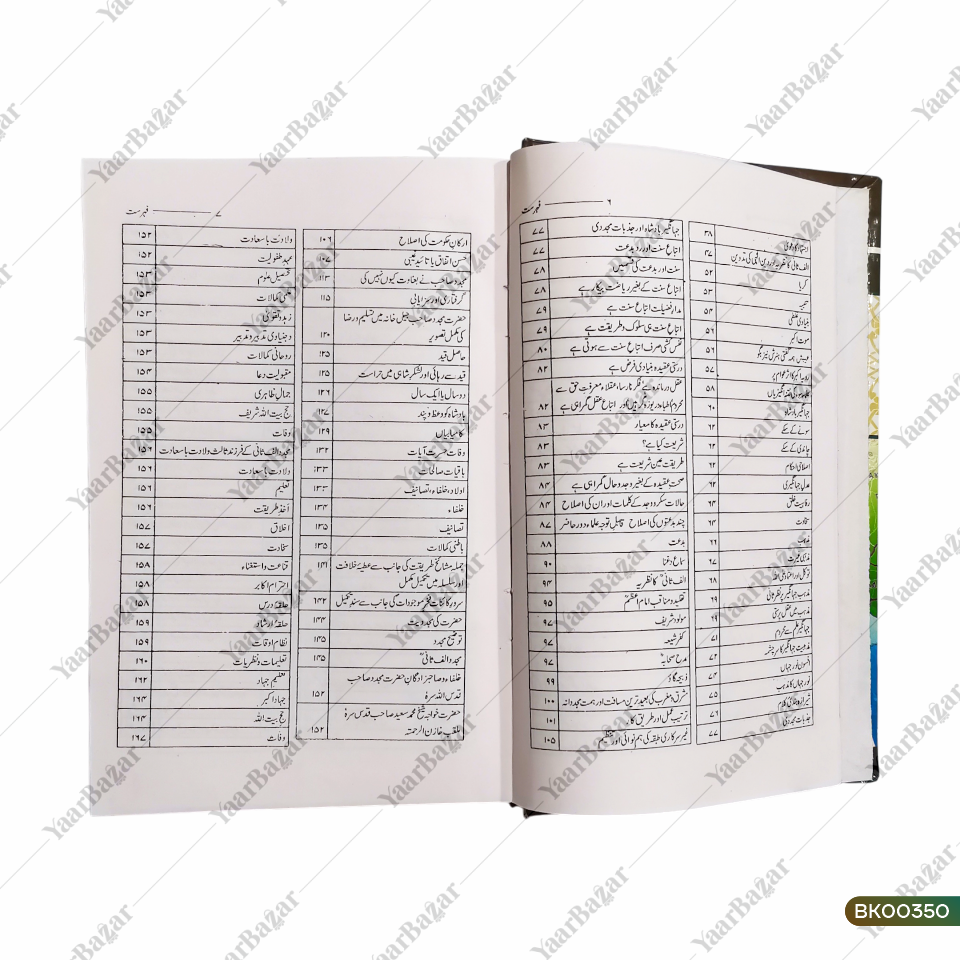 ۶ ——— فہرست
۳۸
۴۷
۵۲
۵۳
۵۴
بنیادی غلطی ۵۶
موت اکبر ۵۶
۵۷
۵۸
جہانگیر بادشاہ ۶۰
سونے کے سکے ۶۲
چاندی کے سکے ۶۲
اصلاحی احکام ۶۲
عدل جہانگیری ۶۲
۶۴
سخاوت ۶۴
مذہب ۶۶
مذہبی غیرت ۶۷
توکل اور اعتماد علی اللہ ۶۸
مذہب جہانگیر پر نظر ثانی ۶۹
مذہب میں عقل پرستی ۶۹
۷۱
۷۲
افسون نور جہاں ۷۴
نور جہاں کا مذہب ۷۵
۷۶
جذبات مجددی ۷۷
جہانگیر بادشاہ اور جذبات مجددی ۷۷
اتباع سنت اور رد بدعت ۷۷
سنت اور بدعت کی قسمیں ۷۸
اتباع سنت کے بغیر ریاضت بیکار ہے ۷۸
مدار فضیلت اتباع سنت ہے ۷۹
اتباع سنت ہی سلوک و طریقت ہے ۷۹
نفس کشی صرف اتباع سنت سے ہوتی ہے ۸۰
درستی عقیدہ بنیادی فرض ہے ۸۲
عقل درماندہ ہے فکر نارسا، عقلاء معرفت حق سے
محروم اطباء رنجور و گمراہ ہیں اور اتباع عقل گمراہی ہے ۸۲
درستی عقیدہ کا معیار ۸۳
شریعت کیا ہے؟ ۸۳
طریقت عین شریعت ہے ۸۳
صحت عقیدہ کے بغیر وجد و حال گمراہی ہے ۸۴
حالات سکر و وجد کے کلمات اور ان کی اصلاح ۸۴
چند بدعتوں کی اصلاح قابل توجہ علماء دور حاضر ۸۷
بدعت ۸۸
سماع و غنا ۹۰
الف ثانی کا نظریہ ۹۴
تقلید و مناقب امام اعظم ۹۵
مولود شریف ۹۷
کفر شیعہ ۹۷
مدح صحابہ ۹۷
ذبیحہ گاؤ ۹۹
شرق و مغرب کی بعید ترین مسافت اور ہمت مجددانہ ۱۰۰
ترتیب عمل اور طریق کار ۱۰۱
غیر سرکاری طبقہ کی ہم نوائی اور تنظیم ۱۰۵
۷ ——— فہرست
ارکان حکومت کی اصلاح ۱۰۶
حسن اتفاق یا تائید غیبی ۱۰۷
مجدد صاحب نے بغاوت کیوں نہیں کی ۱۱۳
گرفتاری اور سزایابی ۱۱۵
حضرت مجدد صاحب جیل خانہ میں تسلیم و رضا
کی مکمل تصویر ۱۲۰
حاصل قید ۱۲۵
قید سے رہائی اور لشکر شاہی میں حراست ۱۲۵
دو سال یا ایک سال ۱۲۶
بادشاہ کو وعظ و پند ۱۲۷
کامیابیاں ۱۲۹
وفات حسرت آیات ۱۳۲
باقیات صالحات ۱۳۳
اولاد، خلفاء، تصانیف ۱۳۳
خلفاء ۱۳۴
تصانیف ۱۳۵
باطنی کمالات ۱۳۵
جملہ مشائخ طریقت کی جانب سے عطیۂ خلافت
اور سلسلہ میں تکمیل مکمل ۱۴۱
سرور کائنات فخر موجودات کی جانب سے سند تکمیل ۱۴۲
حضرت کی مجددیت ۱۴۴
توضیح مجدد ۱۴۵
مجدد الف ثانی ۱۴۵
خلفاء و صاحبزادگان حضرت مجدد صاحب
قدس اللہ سرہ ۱۵۲
حضرت خواجہ شیخ محمد سعید صاحب قدس سرہ
الملقب خازن الرحمتہ ۱۵۲
ولادت با سعادت ۱۵۲
عہد طفولیت ۱۵۲
تحصیل علوم ۱۵۳
علمی کمالات ۱۵۳
زہد و تقویٰ ۱۵۳
دنیاوی تدبیر و تدبیر ۱۵۳
روحانی کمالات ۱۵۳
مقبولیت دعا ۱۵۴
جمال ظاہری ۱۵۵
حج بیت اللہ شریف ۱۵۵
وفات ۱۵۵
مجدد الف ثانی کے فرزند ثالث ولادت با سعادت ۱۵۶
ولادت با سعادت ۱۵۶
تعلیم ۱۵۶
اخذ طریقت ۱۵۶
اخلاق ۱۵۷
سخاوت ۱۵۷
قناعت و استغناء ۱۵۸
احترام اکابر ۱۵۸
حلقہ درس ۱۵۸
حلقۂ ارشاد ۱۵۹
نظام اوقات ۱۵۹
تعلیمات و نظریات ۱۶۰
تعلیم جہاد ۱۶۲
جہاد اکبر ۱۶۴
حج بیت اللہ ۱۶۴
وفات ۱۶۷
YaarBazar
BK00350